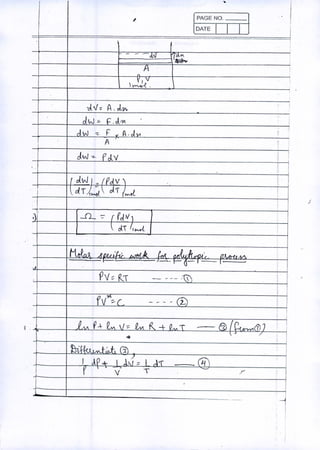 PAGE NO.
DATE
dV dx
A
P, V
1 mol.
dV = A. dx
dW = F. dx
dW = F/A × A. dx
dW = PdV
(dW/dT)1mol = (PdV/dT)1mol
Ω = (PdV/dT)1mol
Molar specific work for polytropic process
PV = RT ---- ①
PVˣ = C ---- ②
ln P + ln V = ln R + ln T — ③ (from ①)
Differentiate ③,
1/P dP + 1/V dV = 1/T dT — ④